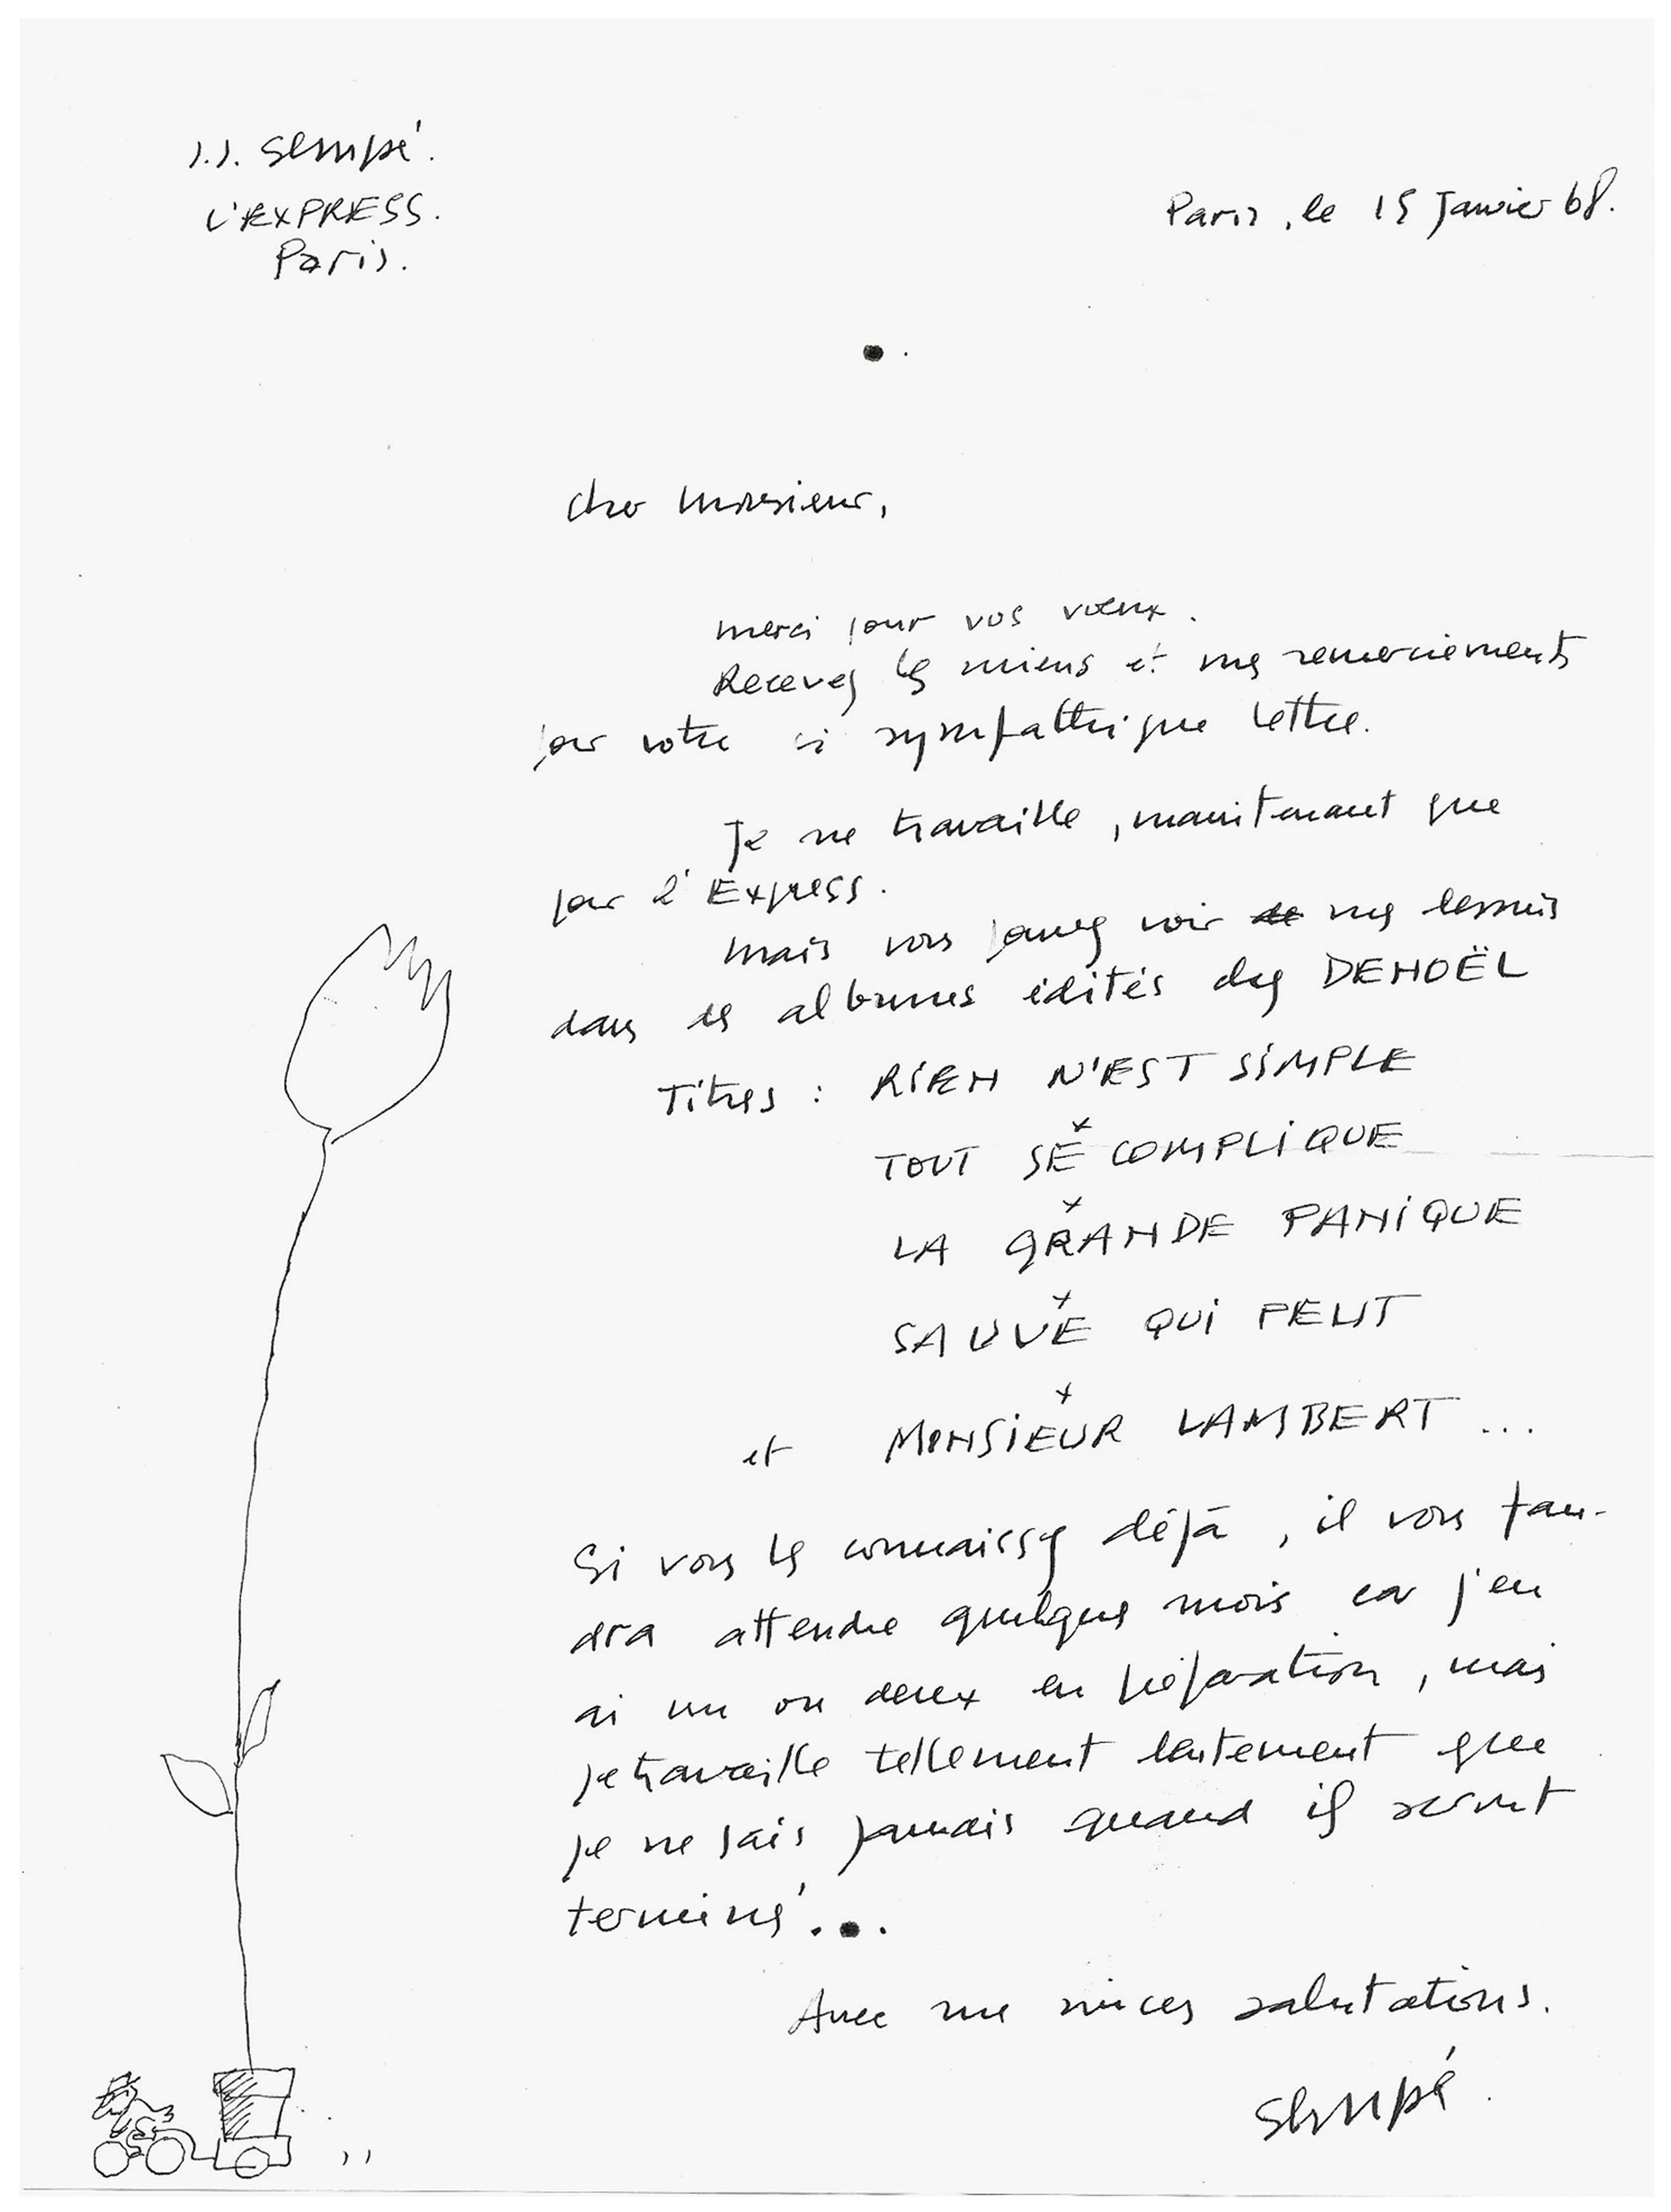 J.J. Sempé.
L'EXPRESS.
Paris.
Paris, le 15 Janvier 68.
Cher Monsieur,
Merci pour vos vœux.
Recevez les miens et mes remerciements
pour votre si sympathique lettre.
Je ne travaille, maintenant que
pour l'Express.
Mais vous pouvez voir de mes dessins
dans des albums édités chez DENOËL
Titres : RIEN N'EST SIMPLE
x
TOUT SE COMPLIQUE
x
LA GRANDE PANIQUE
x
SAUVE QUI PEUT
x
et MONSIEUR LAMBERT ...
Si vous les connaissez déjà, il vous fau-
dra attendre quelques mois car j'en
ai un ou deux en préparation, mais
je travaille tellement lentement que
je ne sais jamais quand ils seront
terminés...
Avec mes sincères salutations.
Sempé.